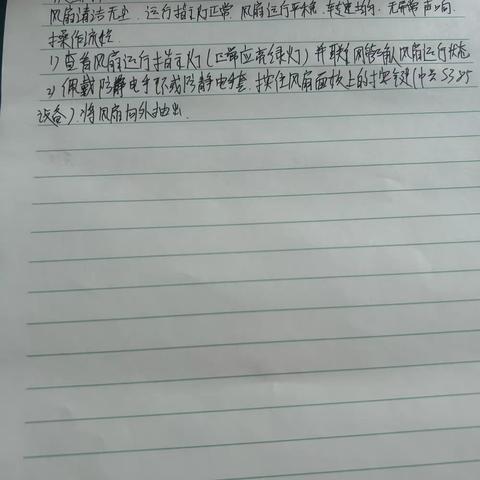 风扇清洁无尘.运行指示灯正常.风扇运行平稳.转速均匀.无异常声响.
操作流程
1) 查看风扇运行指示灯(正常应亮绿灯)并联网管确认风扇运行状态
2) 佩戴防静电手环或防静电手套.按住风扇面板上的按键(中兴S385
设备)将风扇向外抽出.